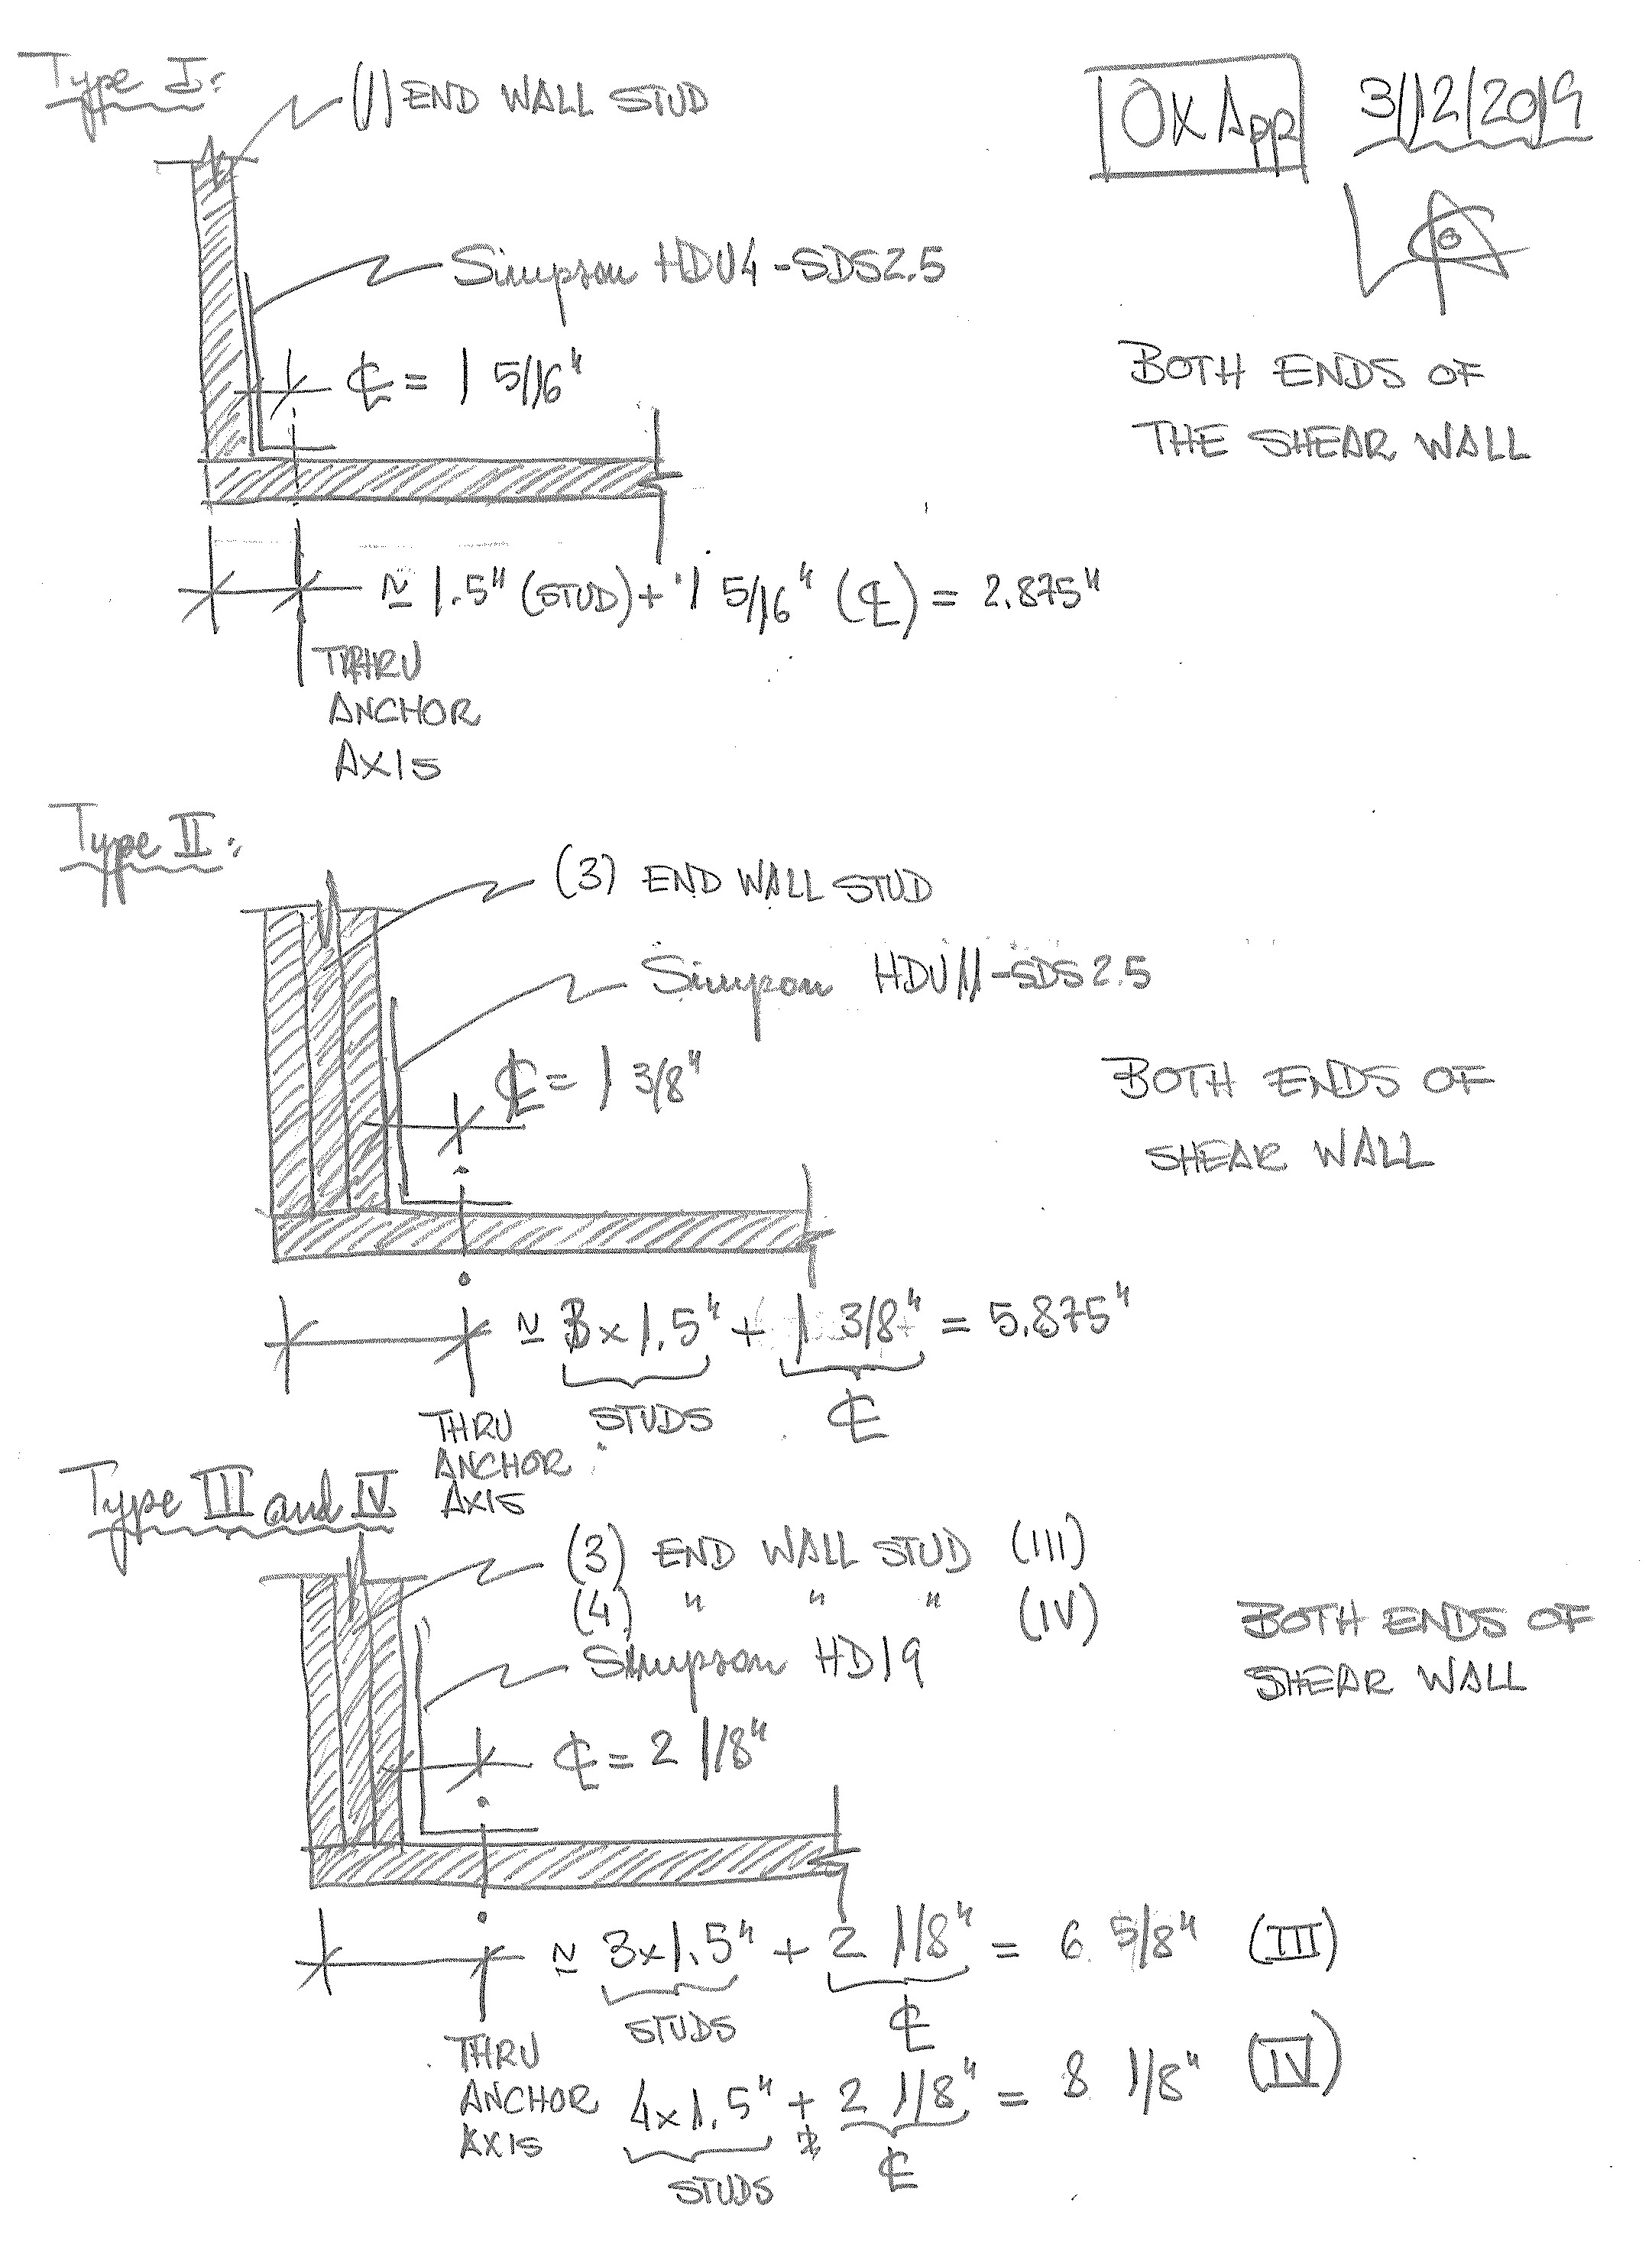 Type I:
(1) END WALL STUD
OX App
3/12/2019
Simpson HDU4-SDS2.5
℄ = 1 5/16"
BOTH ENDS OF
THE SHEAR WALL
≃ 1.5" (STUD) + 1 5/16" (℄) = 2.875"
THRU
ANCHOR
AXIS
Type II:
(3) END WALL STUD
Simpson HDU11-SDS2.5
℄ = 1 3/8"
BOTH ENDS OF
SHEAR WALL
≃ 3x1.5" + 1 3/8" = 5.875"
STUDS ℄
THRU
ANCHOR
AXIS
Type III and IV
(3) END WALL STUD (III)
(4) " " " (IV)
Simpson HD19
BOTH ENDS OF
SHEAR WALL
℄ = 2 1/8"
≃ 3x1.5" + 2 1/8" = 6 5/8" (III)
STUDS ℄
THRU
ANCHOR
AXIS
4x1.5" + 2 1/8" = 8 1/8" (IV)
STUDS ℄